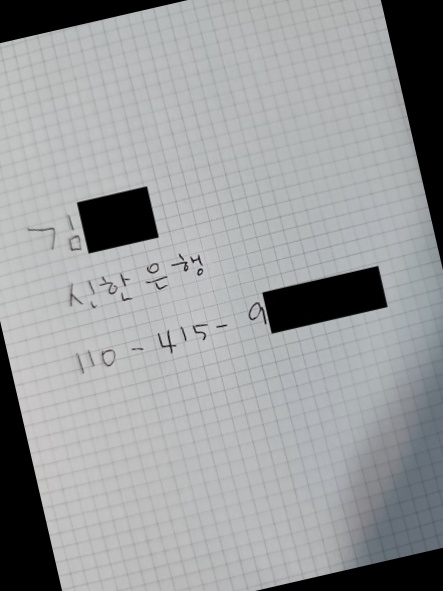 김
신한은행
110 - 415 - 9